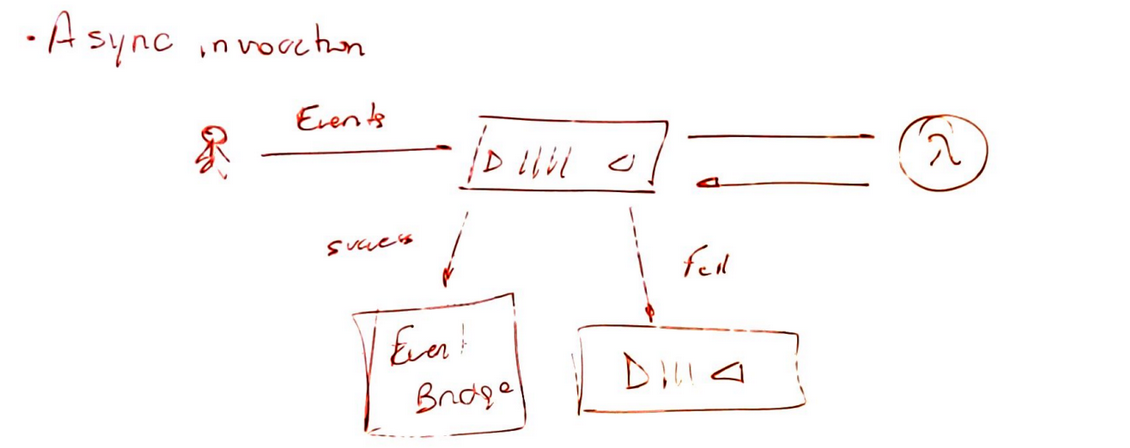 • Async invocation
Events
λ
success
fail
Event
Bridge